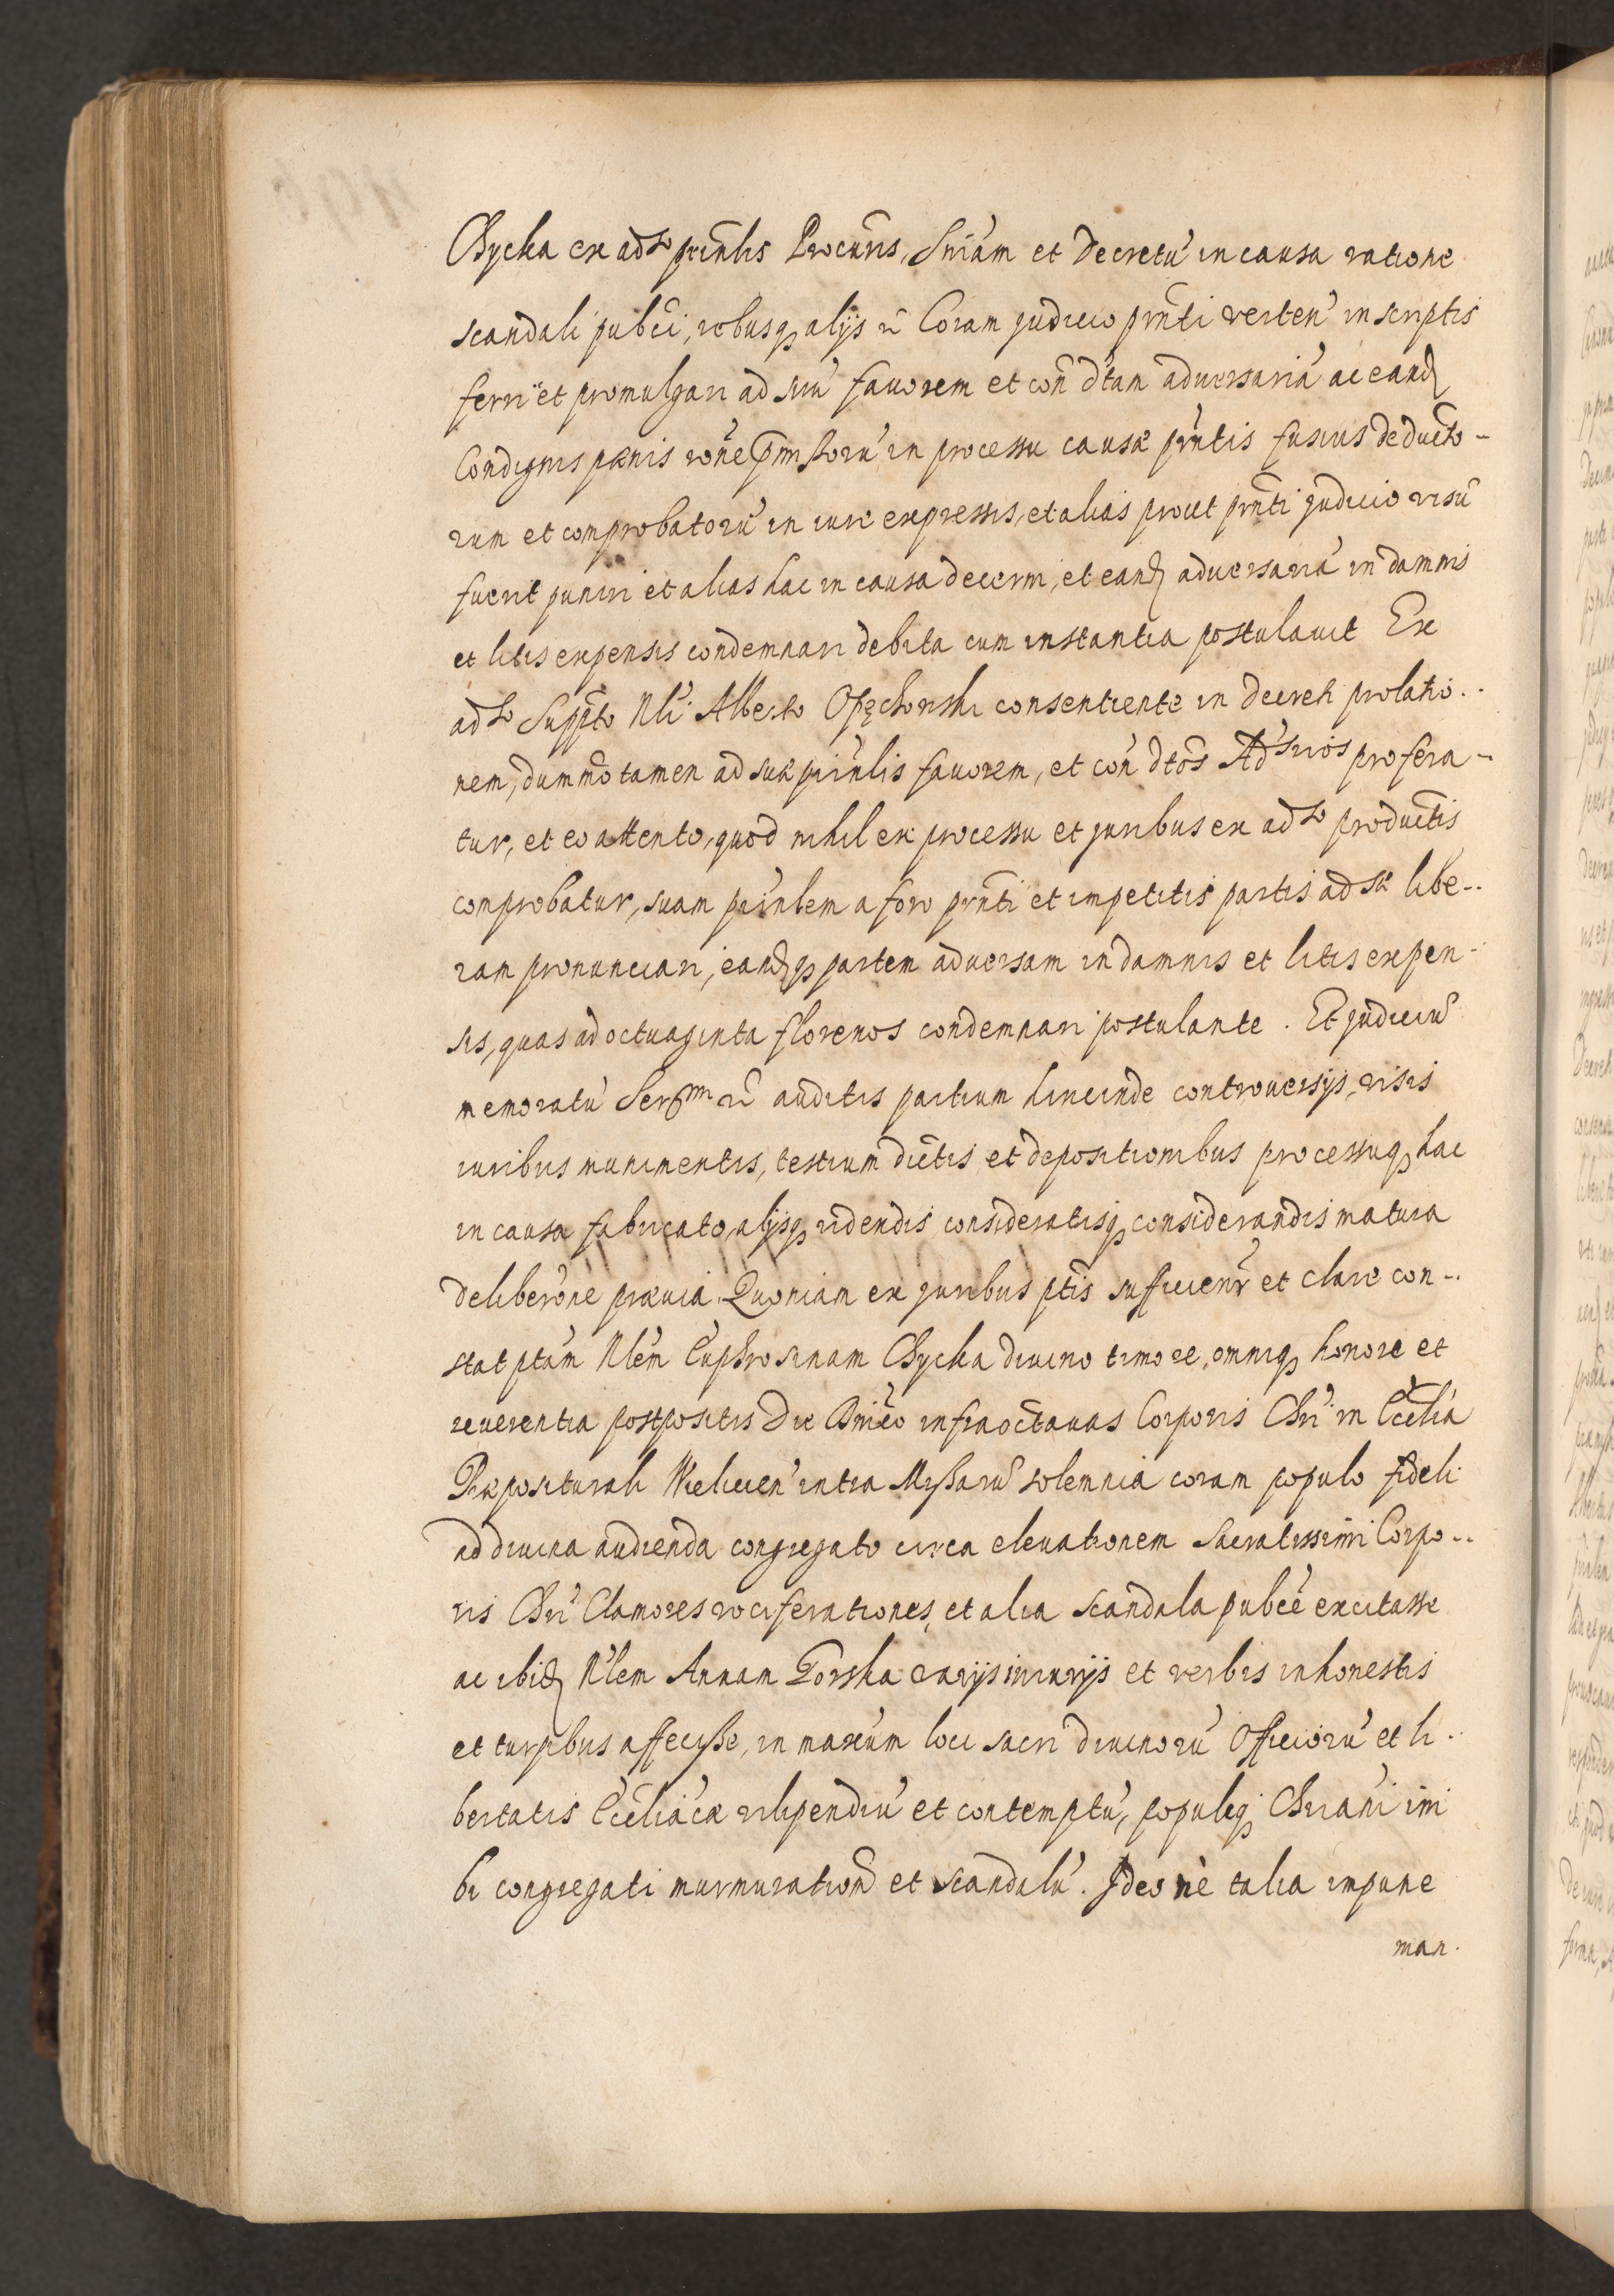 Chycka ex adso prinlis Procuris, Sniam et Decretu in causa ratione
scandali pubci, rebusq alijs rc Coram judicio prnti verten in scriptis
ferri et promulgari ad sui favorem et con dtam adversaria ac eand
Condignis pænis rone pmissoru in processu causæ prntis fusius deducto-
rum et comprobatoru in iure expressis, et alias prout prnti judicio visu
fuerit puniri et alias hac in causa decerni, et eand adversaria in damnis
et litis expensis condemnari debita cum instantia postulavit Ex
adso Suppto Nli Alberto Opęchowski consentiente in decreti prolatio-
nem, dummo tamen ad suæ prinlis favorem, et con dtos Adsrios profera-
tur, et eo attento, quod nihil ex processu et juribus ex adso productis
comprobatur, suam prinlem a foro prnti et impetitis partis adsæ libe-
ram pronunciari, eandq partem adversam in damnis et litis expen-
sis, quas ad octuaginta florenos condemnari postulante. Et judiciu
memoratu Serssm rc auditis partium hincinde controversijs, visis
iuribus munimentis, testium dictis et depositionibus processuq hac
in causa fabricato, alijsq videndis consideratisq considerandis matura
deliberone prævia. Quoniam ex juribus ptis sufficientr et clare con-
stat ptam Nlem Euphrosinam Chycka divino timore, omniq honore et
reverentia postpositis Die Dnico infra octavas Corporis Chri in Ecclia
Præpositurali Wielicien intra Missaru solemnia coram populo fideli
ad divina audienda congregato circa elevationem Sacratissimi Corpo-
ris Chri Clamores vociferationes, et alia scandala pubce excitasse
ac ibid Nlem Annam Gorska varijs iniurijs et verbis inhonestis
et turpibus affecisse, in maxium loci sacri divinoru Officioru et li-
bertatis Eccliacæ vilipendiu et contemptu, populiq Chriani ini
bi congregati murmuration et scandalu. Ideo nè talia impune
man.